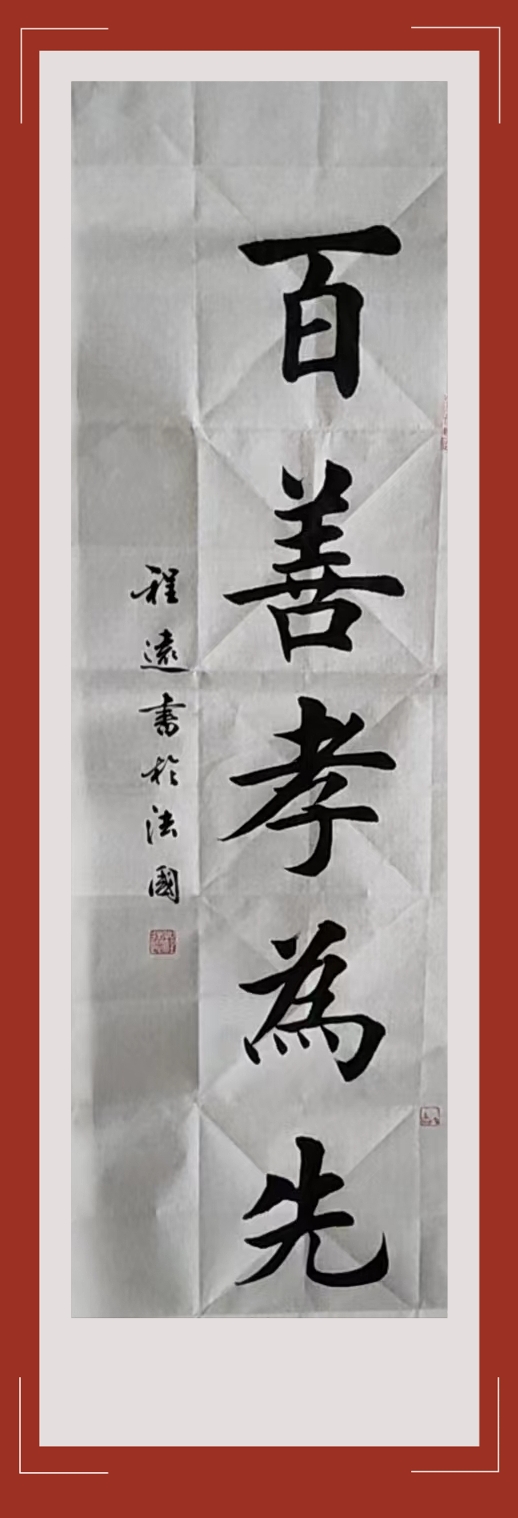 百善孝為先
程遠書於法國